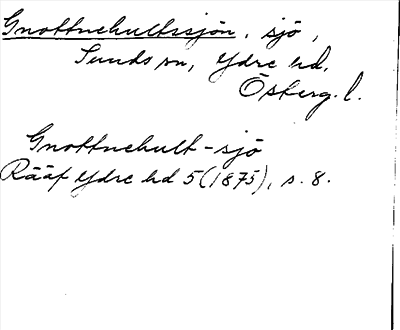 Gnottnehultssjön, sjö,
Sunds sn, Ydre hd,
Österg. l.
Gnottnehult-sjö
Rääf Ydre hd 5 (1875), s. 8.